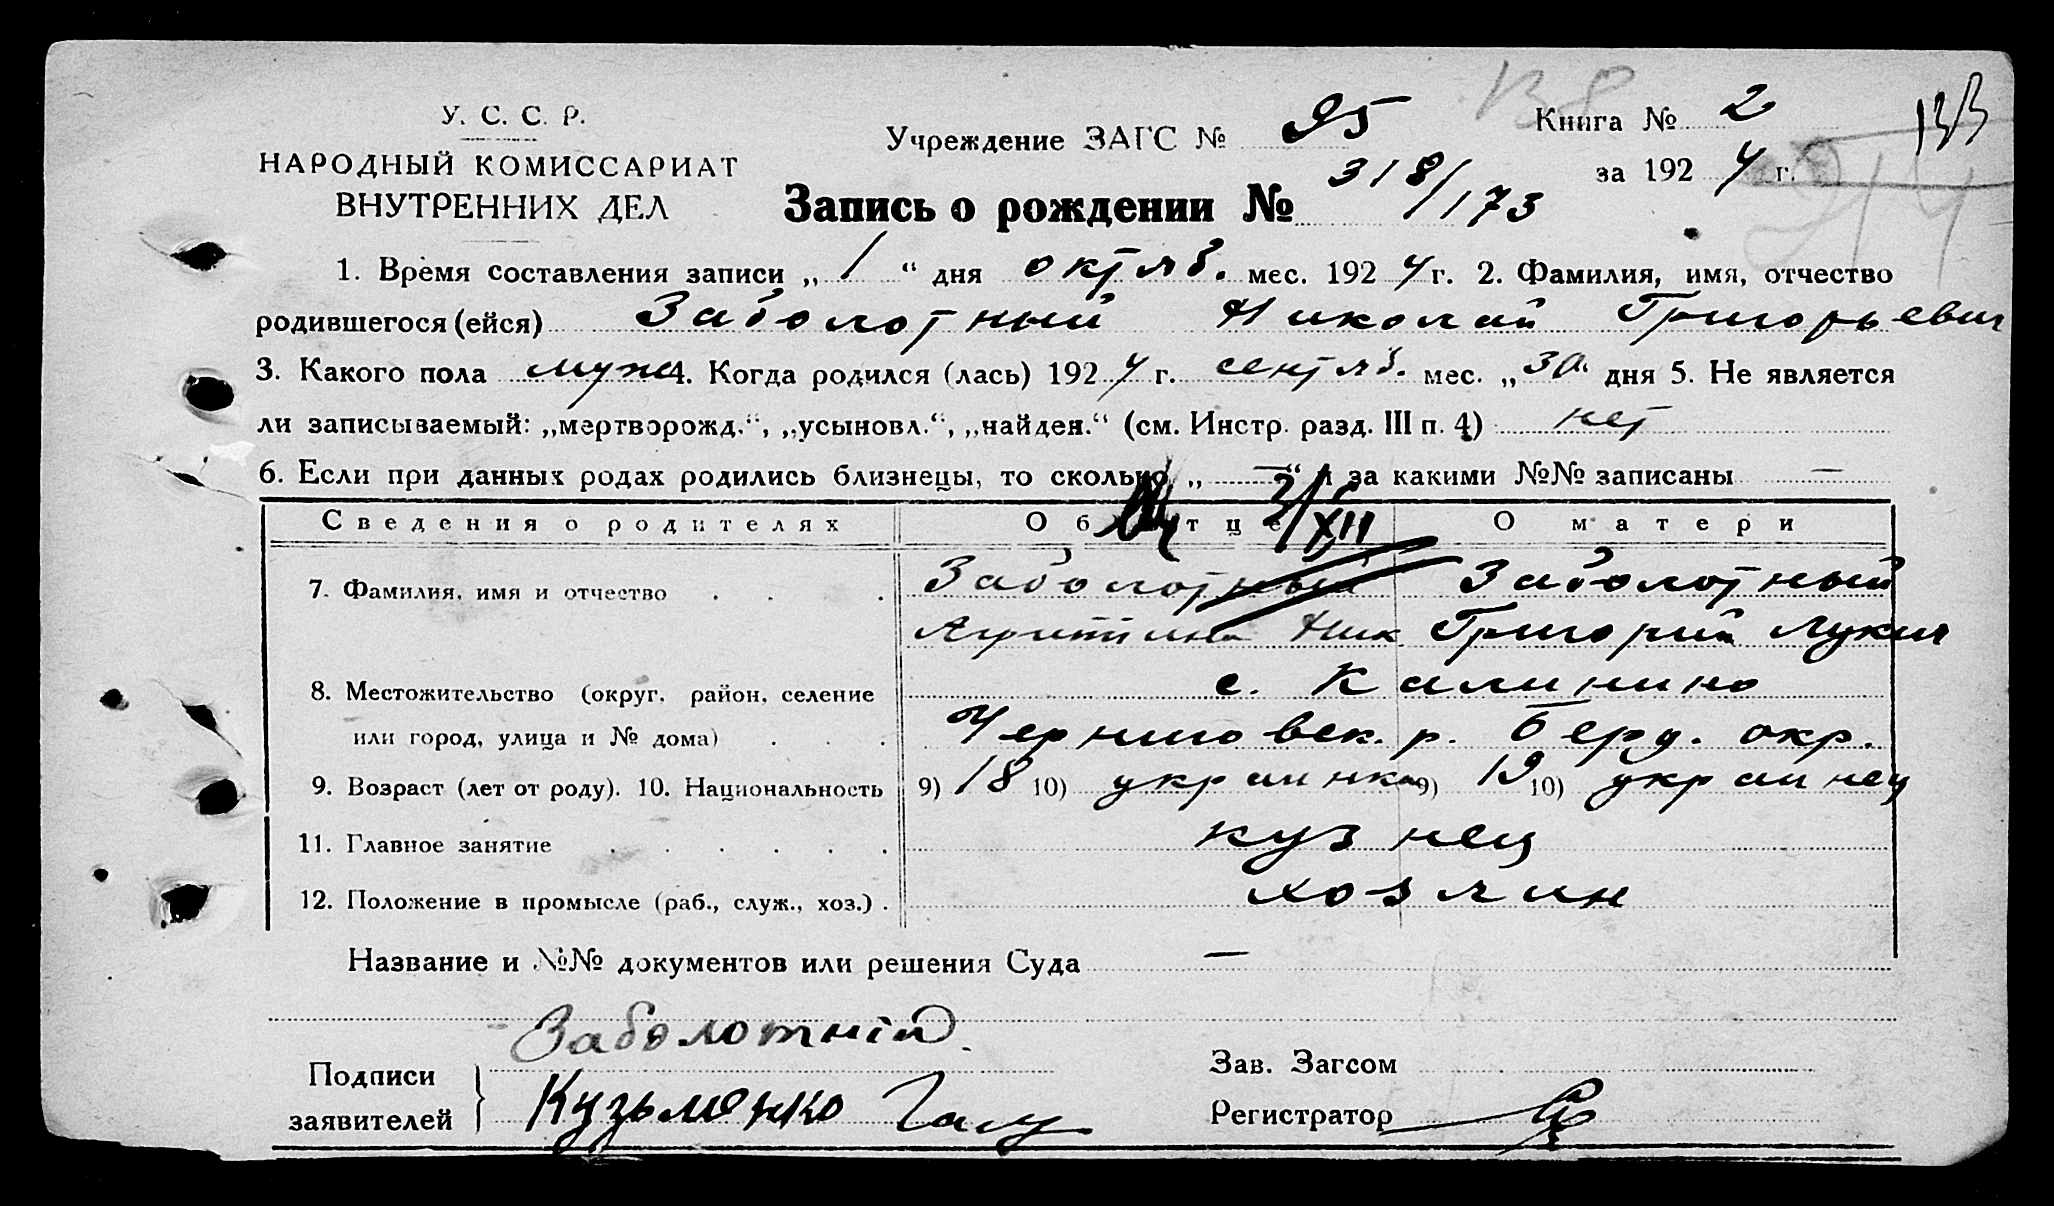 У. С. С. Р.
НАРОДНЫЙ КОМИССАРИАТ
ВНУТРЕННИХ ДЕЛ
Учреждение ЗАГС № 95
138
Книга № 2
133
за 1924 г.
214
Запись о рождении № 318/173
1. Время составления записи „ 1 “ дня октяб. мес. 1924 г. 2. Фамилия, имя, отчество
родившегося (ейся) Заболотный Николай Григорьевич
3. Какого пола муж 4. Когда родился (лась) 1924 г. сентяб. мес. „ 30. дня 5. Не является
ли записываемый: „мертворожд.“, „усыновл.“, „найден.“ (см. Инстр. разд. III п. 4) нет
6. Если при данных родах родились близнецы, то сколько „ — “ и за какими №№ записаны —
Сведения о родителях Об отце О матери
XII
7. Фамилия, имя и отчество Заболотный Заболотный
Ник Григорий Лукич
8. Местожительство (округ, район, селение с. Калинино
или город, улица и № дома) Черниговск. р. Берд. окр.
9. Возраст (лет от роду). 10. Национальность 9) 18 10) украинка 9) 19 10) украинец
11. Главное занятие кузнец
12. Положение в промысле (раб., служ., хоз.) хозяин
Название и №№ документов или решения Суда —
Заболотній.
Подписи
заявителей
Кузьменко
Зав. Загсом
Регистратор